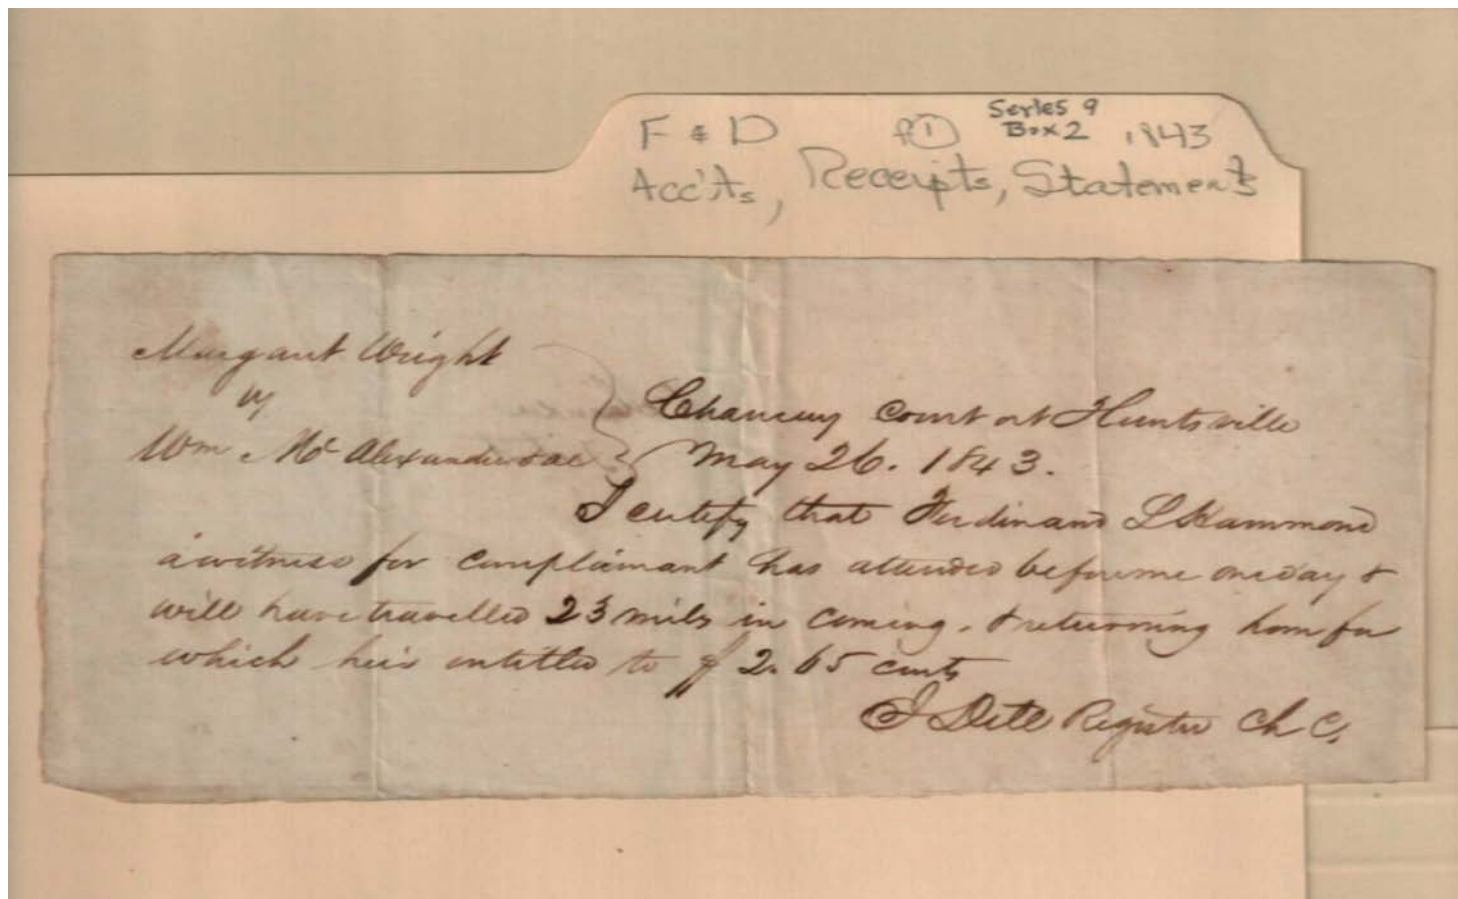 F & D f① Series 9
Box 2 1843
Acc'ts, Receipts, Statements
Margaret Wright
vs
Wm Mc Alexander & al
Chancery Court at Huntsville
May 26. 1843.
I certify that Ferdinand L Hammond
a witness for complainant has attended before me one day &
will have travelled 23 miles in coming. & returning home for
which he is entitled to $ 2.65 cents
Register Ch C.